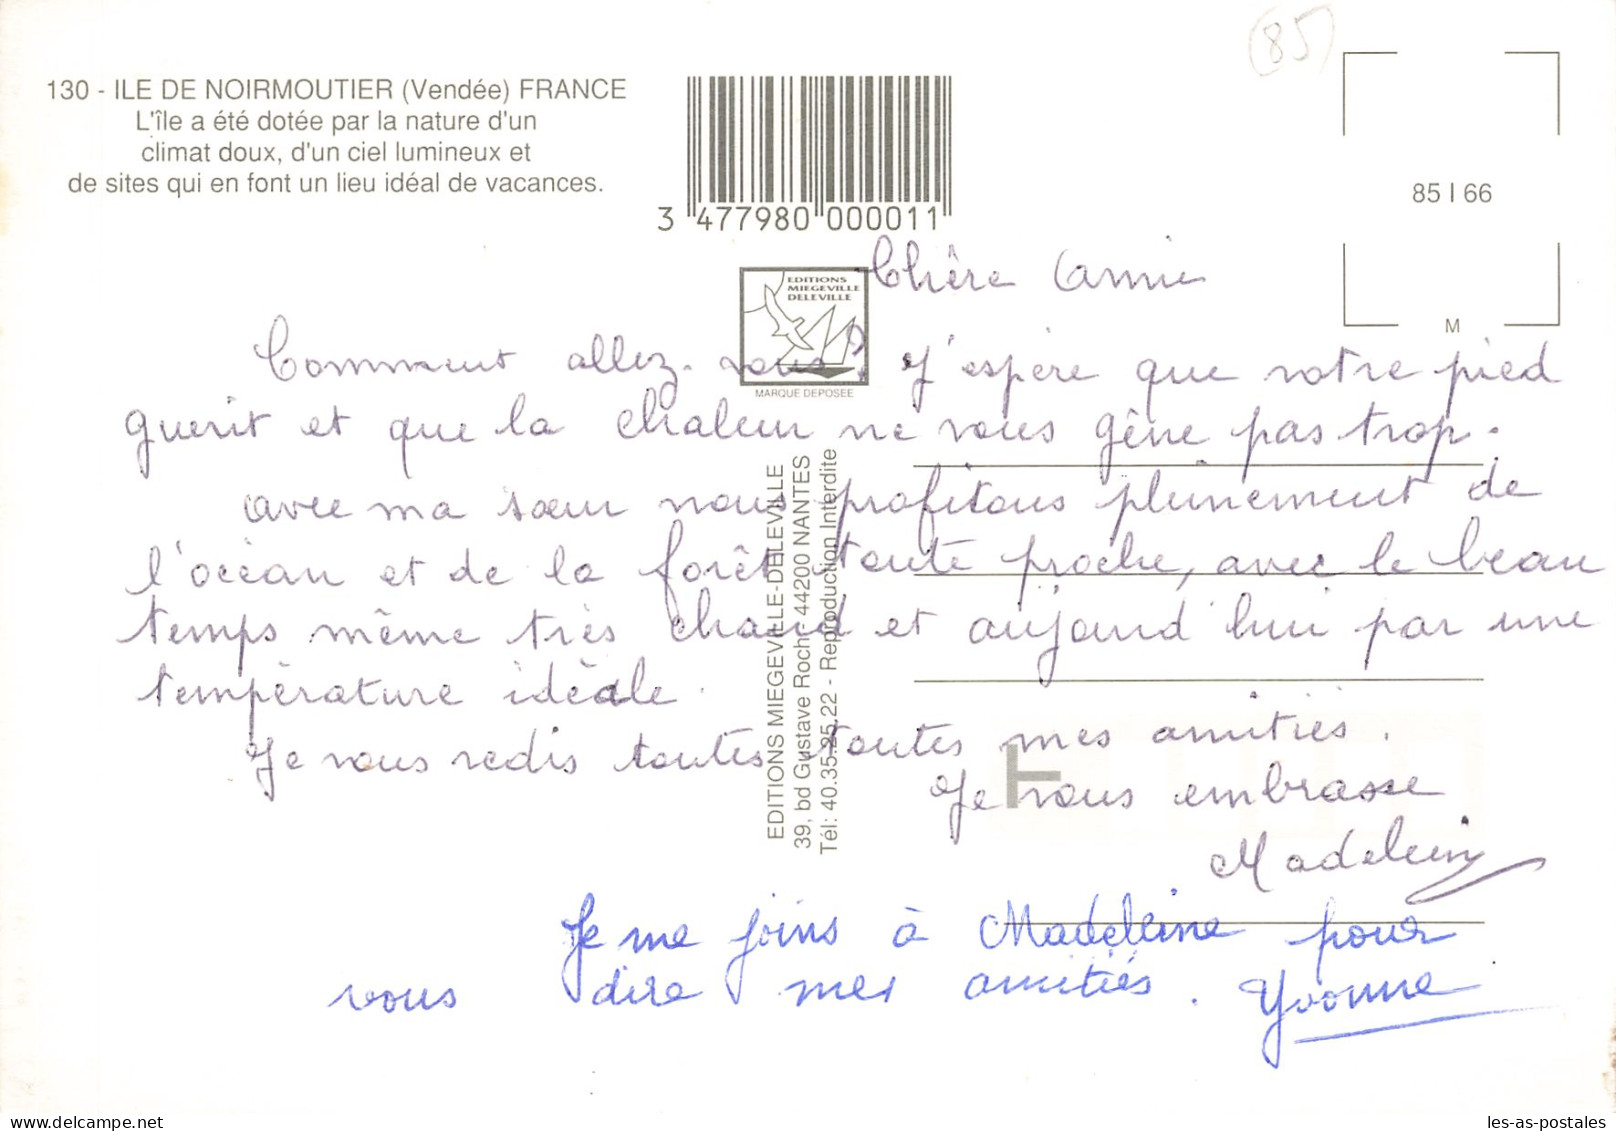 (85)
130 - ILE DE NOIRMOUTIER (Vendée) FRANCE
L'île a été dotée par la nature d'un
climat doux, d'un ciel lumineux et
de sites qui en font un lieu idéal de vacances.
3 477980 000011
85 I 66
M
EDITIONS
MIEGEVILLE
DELEVILLE
MARQUE DEPOSEE
Chère amie
Comment allez-vous? J'espère que votre pied
guerit et que la chaleur ne vous gène pas trop.
avec ma sœur nous profitons pleinement de
l'océan et de la forêt toute proche, avec le beau
temps même très chaud et aujourd'hui par une
température idéale.
Je vous redis toutes toutes mes amitiés.
Je vous embrasse
Madeleine
Je me joins à Madeleine pour
vous dire mes amitiés. Yvonne
EDITIONS MIEGEVILLE-DELEVILLE
39, bd Gustave Roch - 44200 NANTES
Tél: 40.35.25.22 - Reproduction Interdite
delcampe.net
les-as-postales